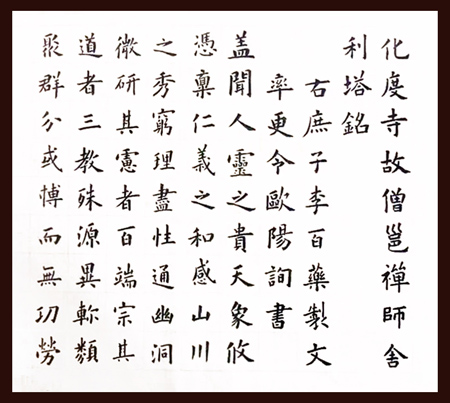 化度寺故僧邕禪師舍
利塔銘
右庶子李百藥製文
率更令歐陽詢書
盖聞人靈之貴天象攸
憑稟仁義之和感山川
之秀窮理盡性通幽洞
微研其憲者百端宗其
道者三教殊源異軫類
聚群分或博而無功勞